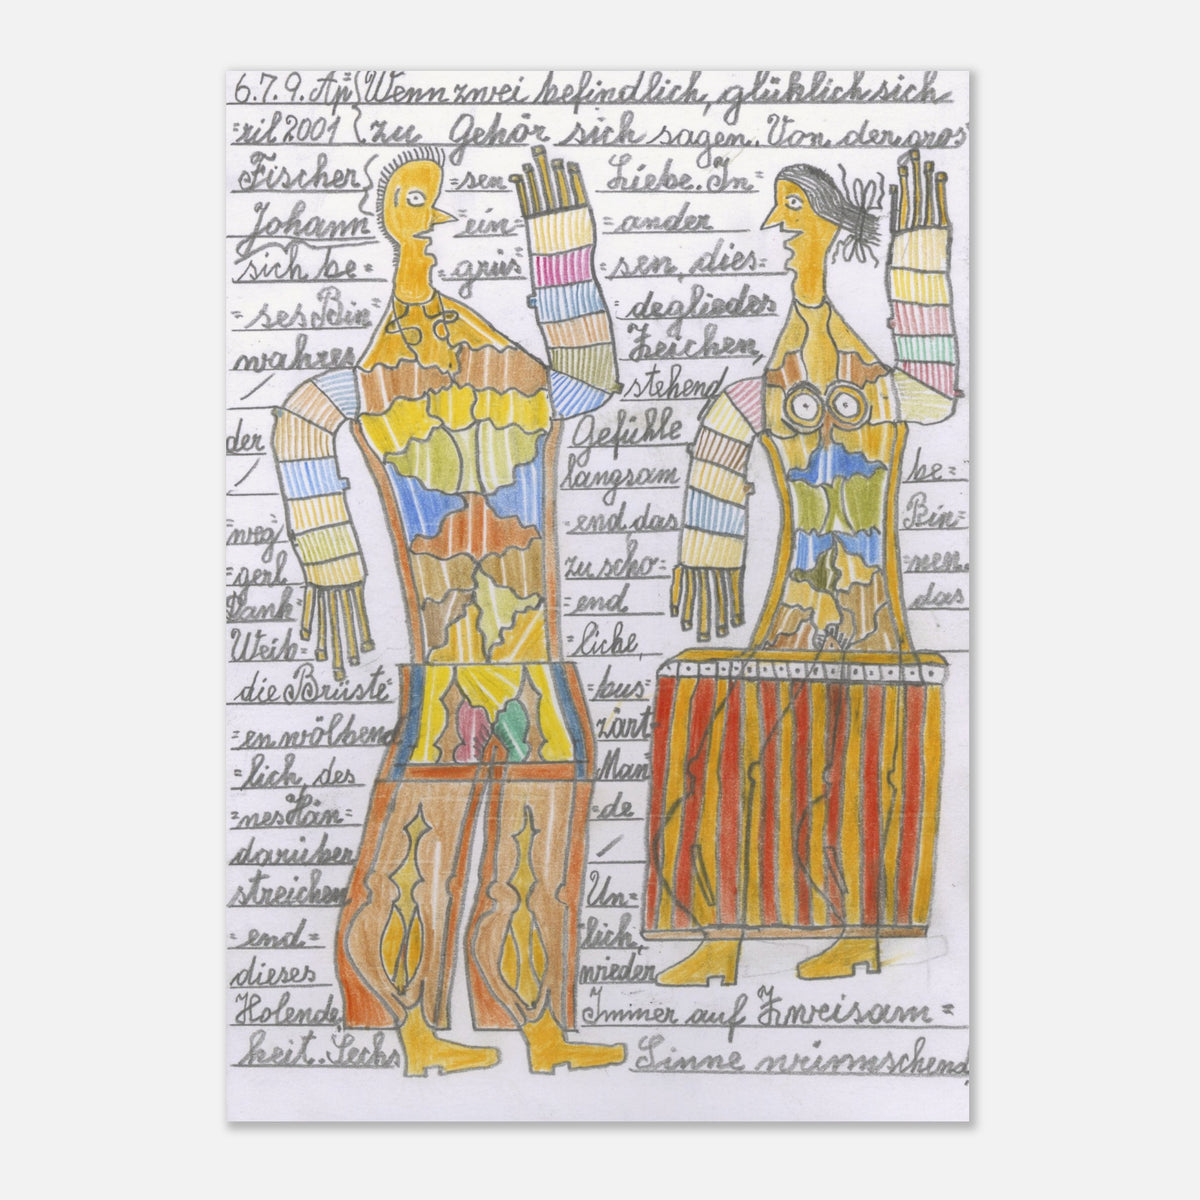 6.7.9. Ap= { Wenn zwei befindlich, glüklich sich
=ril 2001 { zu Gehör sich sagen. Von der gros=
Fischer { =sen Liebe. In=
Johann =ein= =ander
sich be= =grüs= =sen, dies=
=ses Bin= degliedes
wahres Zeichen,
/ stehend
der Gefühle be=
/ langsam
=weg= =end, das Bin=
=gerl zu scho= =nen.
Dank= =end das
Weib= =liche,
die Brüste =bus=
=en wölbend zärt=
=lich, des Man=
=nes Hän= =de
darüber /
streichen Un=
=end= =lich,
dieses wieder
Holende Immer auf Zweisam=
keit. Sechs Sinne wünnschend,